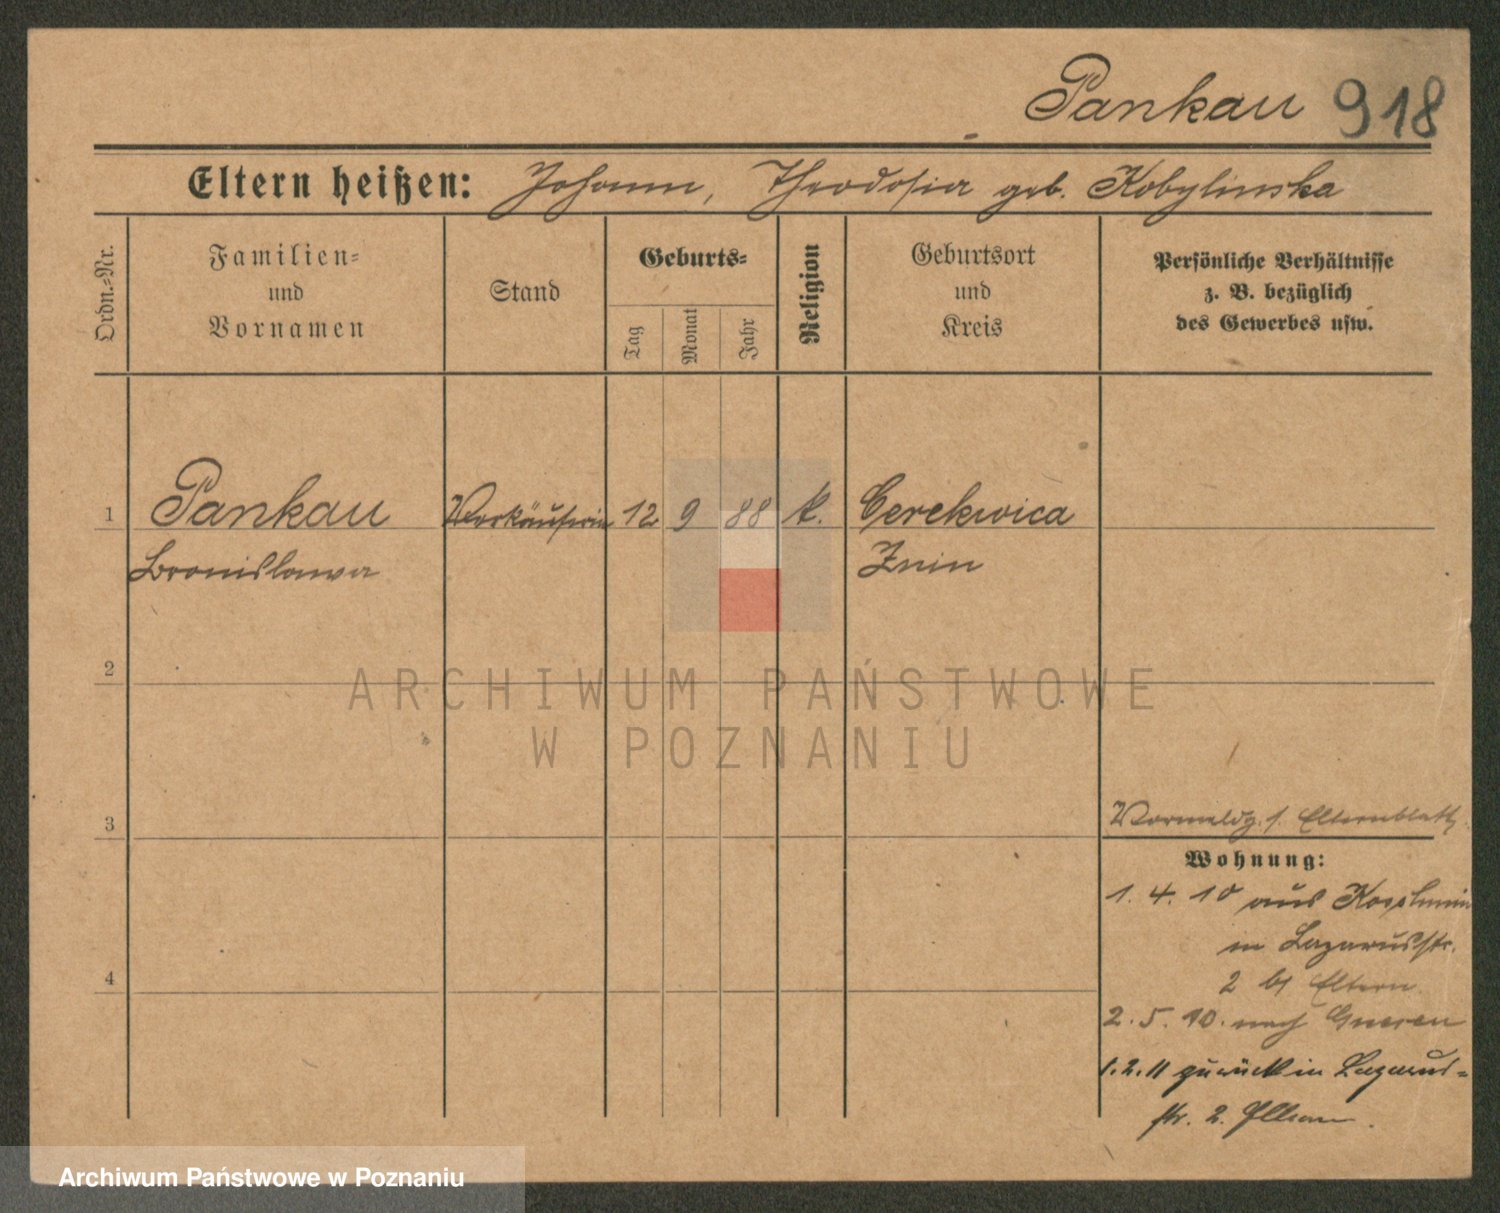 Pankau 918
Eltern heißen: Johann, Theodosia geb. Kobylinska
Ordn.-Nr.
Familien-
und
Vornamen
Stand
Geburts-
Tag
Monat
Jahr
Religion
Geburtsort
und
Kreis
Persönliche Verhältnisse
z. B. bezüglich
des Gewerbes usw.
1 Pankau Verkäuferin 12 9 88 k. Cerekwica
Bronislawa Znin
2
ARCHIWUM PAŃSTWOWE
W POZNANIU
3
Vormeldg. s. Elternblatt
Wohnung:
1. 4. 10 aus
in Lazarusstr.
4
2 bei Eltern
2. 5. 10. nach Gnesen
1. 2. 11 zurück in Lazarus-
str. 2. Eltern.
Archiwum Państwowe w Poznaniu